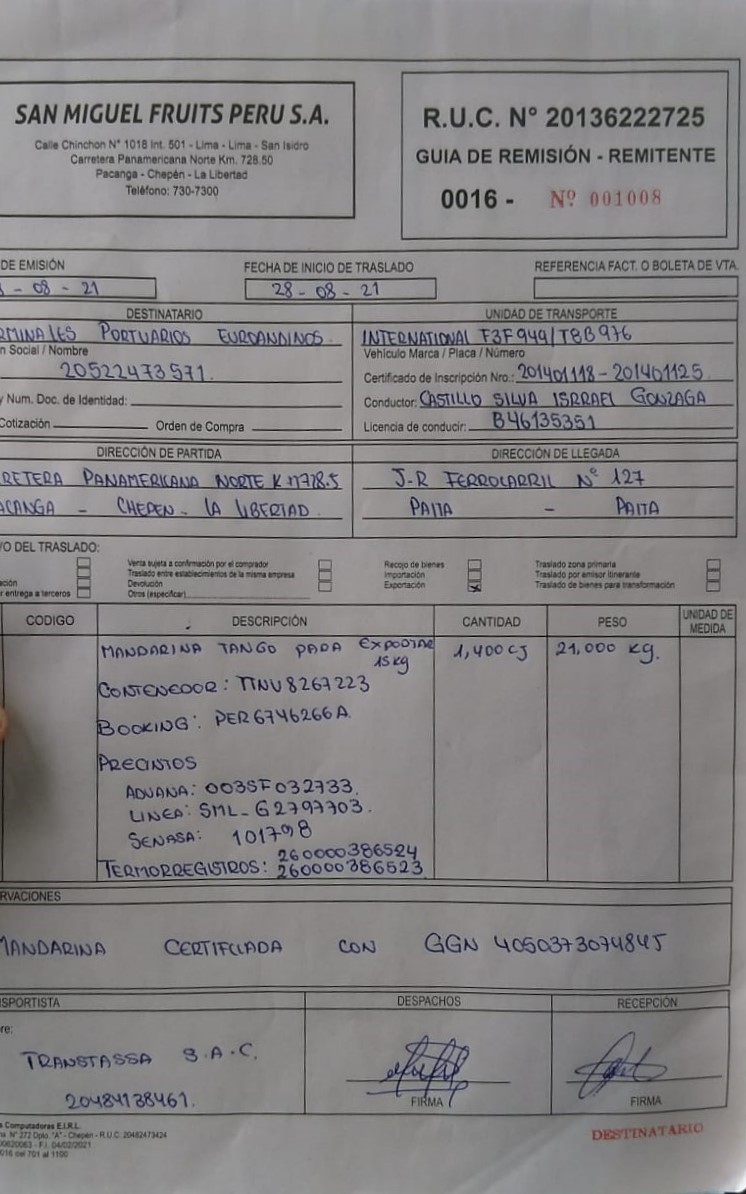 SAN MIGUEL FRUITS PERU S.A.
Calle Chinchon N° 1018 Int. 501 - Lima - Lima - San Isidro
Carretera Panamericana Norte Km. 728.50
Pacanga - Chepén - La Libertad
Teléfono: 730-7300
R.U.C. N° 20136222725
GUIA DE REMISIÓN - REMITENTE
0016 - Nº 001008
DE EMISIÓN
- 08 - 21
FECHA DE INICIO DE TRASLADO
28 - 08 - 21
REFERENCIA FACT. O BOLETA DE VTA.
DESTINATARIO
RMINALES PORTUARIOS EUROANDINOS.
n Social / Nombre
20522473571.
y Num. Doc. de Identidad:
Cotización Orden de Compra
UNIDAD DE TRANSPORTE
INTERNATIONAL F3F949/T8B976
Vehículo Marca / Placa / Número
Certificado de Inscripción Nro.: 201401118 - 201401125
Conductor: CASTILLO SILVA ISRRAEL GONZAGA
Licencia de conducir: B46135351
DIRECCIÓN DE PARTIDA
RETERA PANAMERICANA NORTE KM728.5
ACANGA - CHEPEN - LA LIBERTAD
DIRECCIÓN DE LLEGADA
J-R FERROCARRIL Nº 127
PAITA - PAITA
O DEL TRASLADO:
ación
r entrega a terceros
Venta sujeta a confirmación por el comprador
Traslado entre establecimientos de la misma empresa
Devolución
Otros (especificar)
Recojo de bienes
Importación
Exportación
Traslado zona primaria
Traslado por emisor itinerante
Traslado de bienes para transformación
CODIGO DESCRIPCIÓN CANTIDAD PESO UNIDAD DE MEDIDA
MANDARINA TANGO PARA EXPORTAR 1,400 CJ 21,000 KG.
15 kg
CONTENEDOR: TTNU8267223
BOOKING: PER6746266A
PRECINTOS
ADUANA: 003SF032733.
LINEA: SML-G2797703.
SENASA: 101798
260000386524
TERMORREGISTROS: 260000386523
RVACIONES
MANDARINA CERTIFCIADA CON GGN 4050373074845
NSPORTISTA
re:
TRANSTASSA S.A.C.
20484138461.
DESPACHOS
FIRMA
RECEPCIÓN
FIRMA
a Computadoras E.I.R.L.
na. N° 272 Dpto. "A" - Chepén - R.U.C. 20482473424
00620063 - F.I. 04/02/2021
016 del 701 al 1100
DESTINATARIO